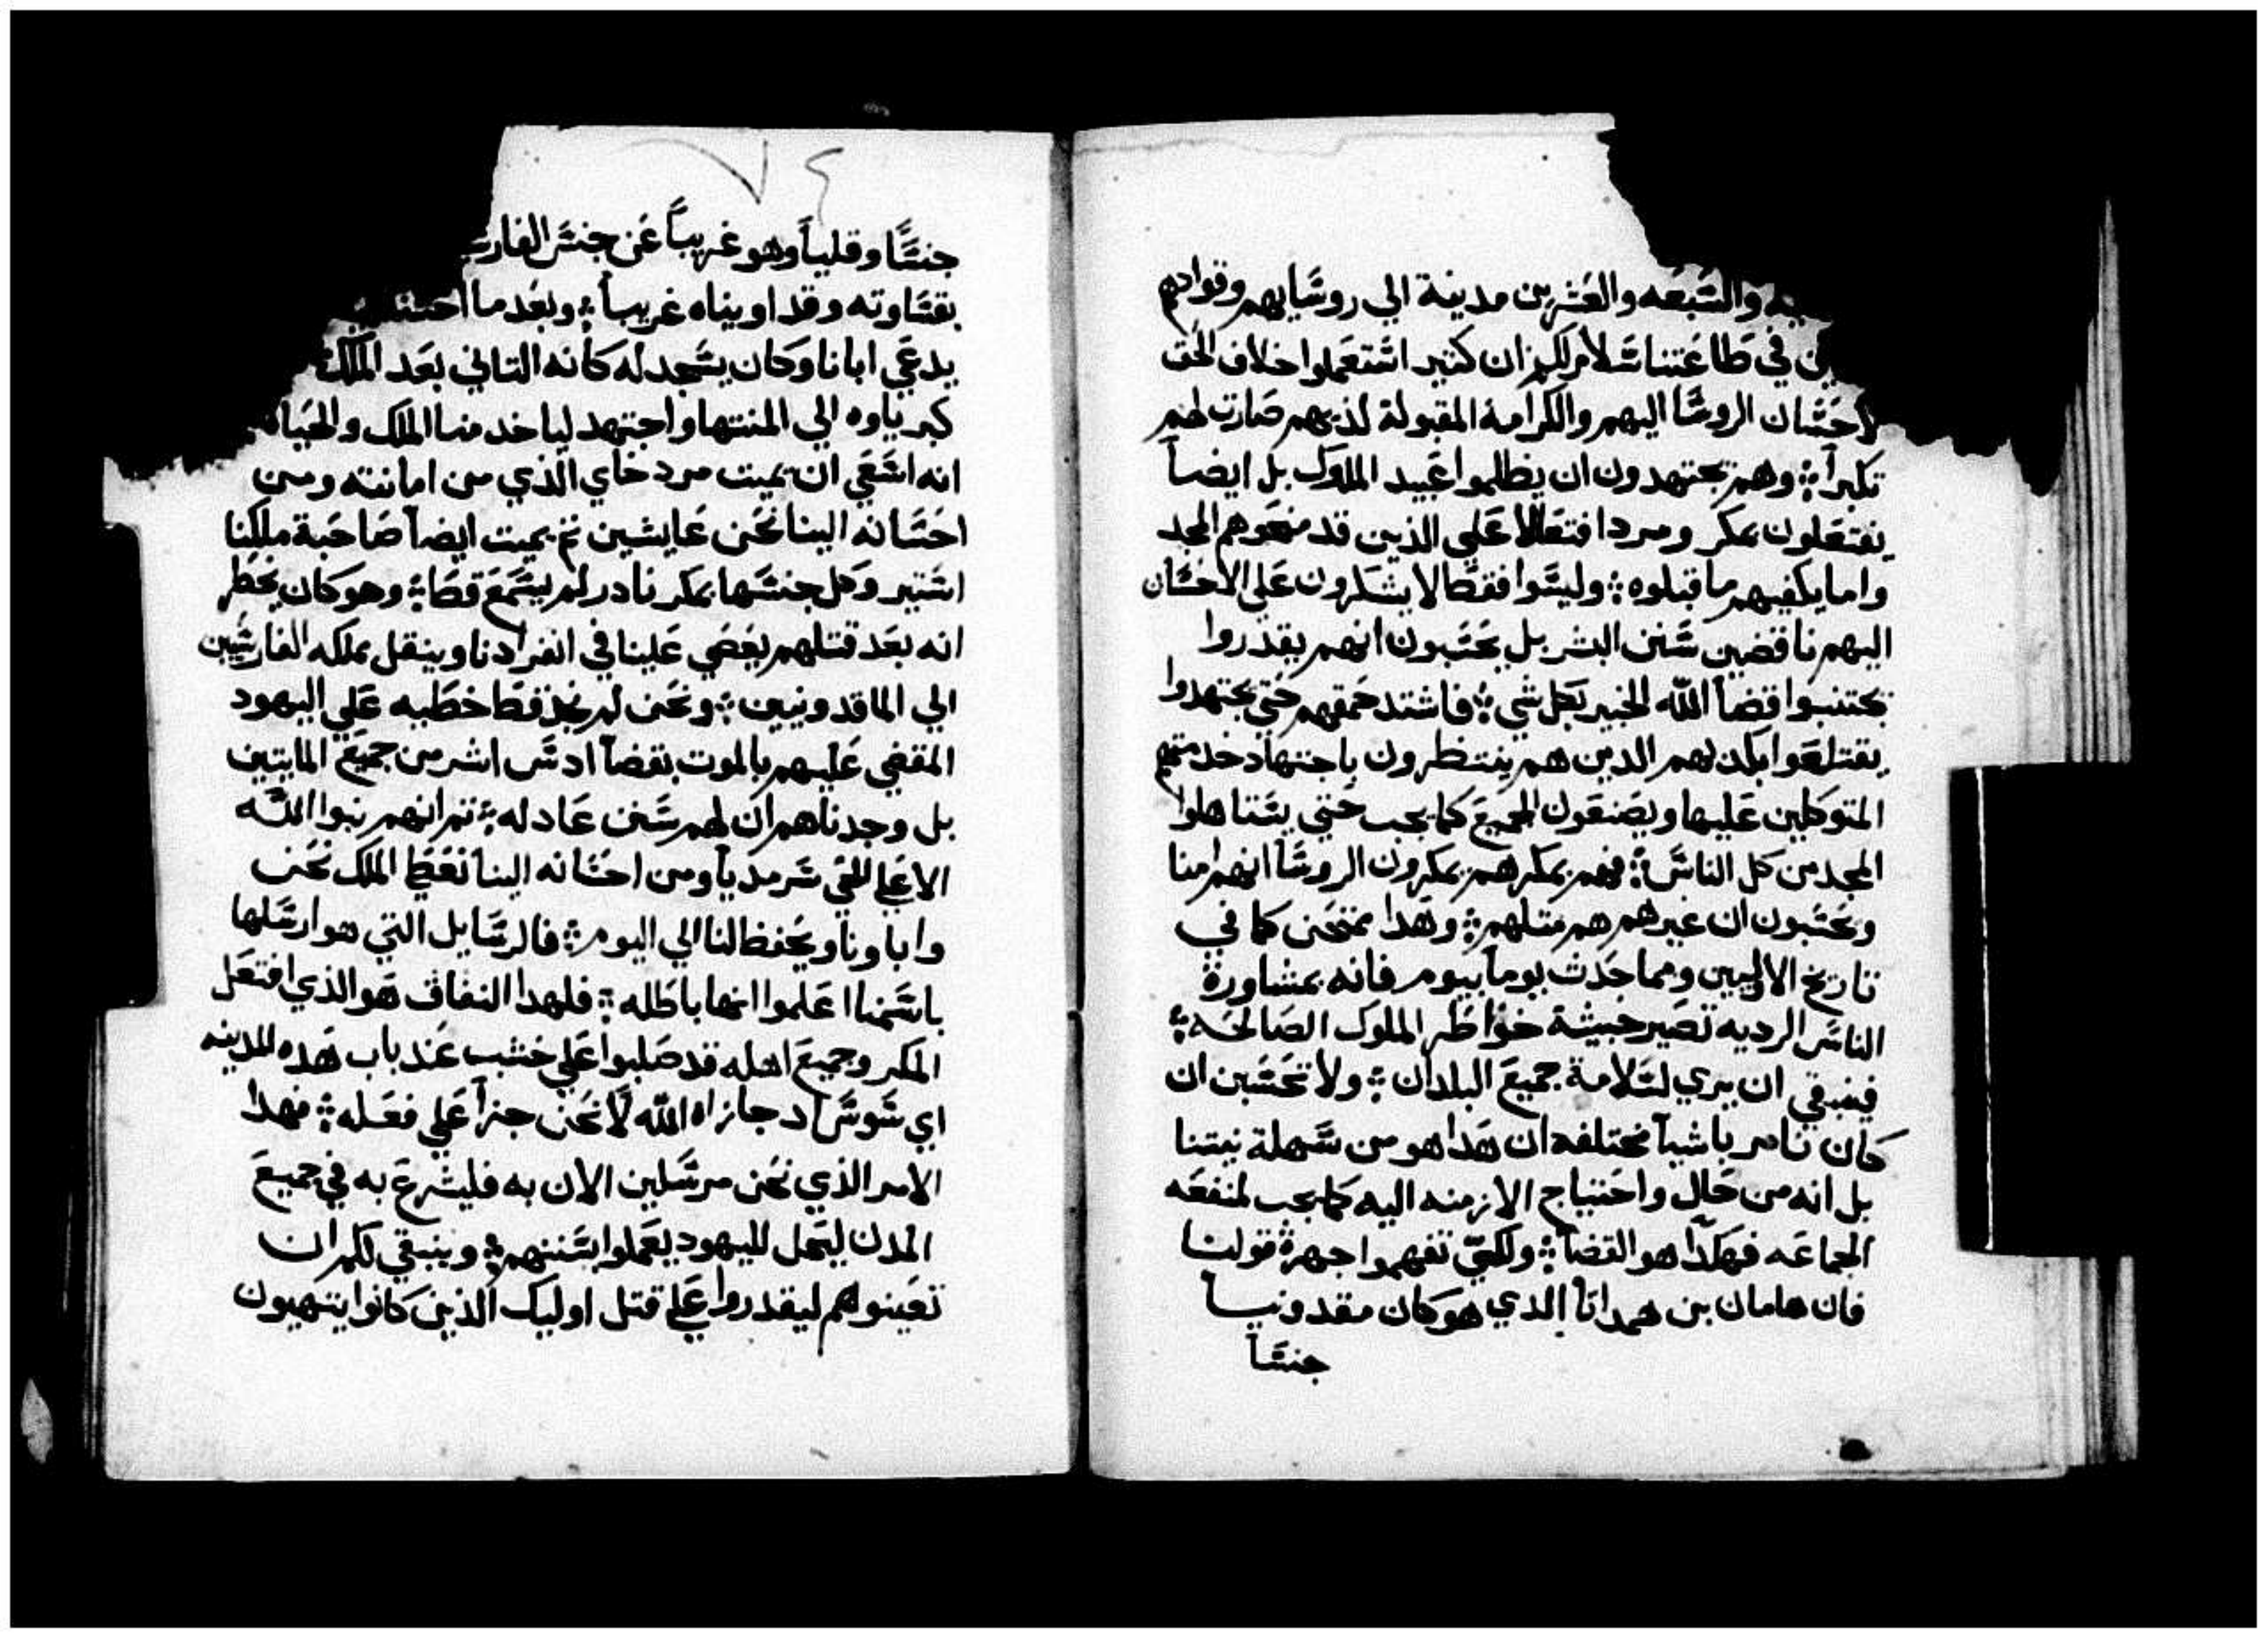 والسبعه والعشرين مدينة الي روسايهم وقوادهم
في طاعتنا سلام لكم ان كتير استعملوا خلاف الحق
لاحسان الروسا اليهم والكرامة المقبولة لديهم صارت لهم
تكبراً؛ وهم يجتهدون ان يظلموا عبيد الملوك بل ايضاً
يفتعلون بمكر ومردا افتعالا علي الذين قد منحوهم المجد
واما يكفيهم ما قبلوه؛ وليسوا فقط لا يشكرون علي الاحسان
اليهم ناقضين سنن البشر بل يحسبون انهم يقدروا
يجتنبوا قضا الله الخبير بكل شي؛ فاشتد حمقهم حتي يجتهدوا
يقتلعوا بكدبهم الدين هم ينتظرون باجتهاد خدمتهم
المتوكلين عليها ويصنعون الجميع كما يجب حتي يستاهلوا
المجد من كل الناس؛ فهم بمكرهم يمكرون الروسا انهم امنا
ويحسبون ان غيرهم هم متلهم؛ وهدا ممتحن كما في
تاريخ الاوليين ومما حدث يوماً بيوم فانه بمشاورة
الناس الرديه تصير خبيثة خواطر الملوك الصالحه؛
فينبقي ان يري لسلامة جميع البلدان؛ ولا تحسبن ان
كان نامر باشيآ مختلفه ان هدا هو من سهلة نيتنا
بل انه من حال واحتياج الازمنه اليه كما يجب لمنفعه
الجماعه فهكدا هو القضآ؛ ولكي تفهموا جهرة قولنا
فان هامان بن همداتا الدي هو كان مقدونياً
جنساً
جنسًا وقلباً وهو غريباً عن جنس الفارس
بقساوته وقد اويناه غريباً؛ وبعد ما احسنا
يدعي ابانا وكان يسجد له كانه التاني بعد الملك
كبرياوه الي المنتها واجتهد لياخد منا الملك والحياه
انه اسعي ان يميت مردخاي الذي من امانته ومن
احسانه الينا نحن عايشين ثم يميت ايضاً صاحبة ملكنا
استير وكل جنسها بمكر نادر لم يسمع قط؛ وهو كان يخطر
انه بعد قتلهم يغصي علينا في انفرادنا وينقل مملكه الفارسين
الي الماقدونيين؛ ونحن لم نجد قط خطيه علي اليهود
المقضي عليهم بالموت بقضآ ادس اشر من جميع المايتين
بل وجدناهم ان لهم سنن عادله؛ ثم انهم بنوا الله
الاعلي الحي سرمدياً ومن احسانه الينا نعطي الملك نحن
واباونا ويحفظ لنا الي اليوم؛ فالرسايل التي هو ارسلها
باسمنا اعلموا انها باطله؛ فلهدا النفاق هو الذي افتعل
المكر وجميع اهله قد صلبوا علي خشب عند باب هده المدينه
اي شوشاد جازاه الله لا نحن جزآ علي فعله؛ فهدا
الامر الذي نحن مرسلين الان به فليشرع به في جميع
المدن ليحل لليهود يعملوا بسننهم؛ وينبقي لكم ان
تعينوهم ليقدروا علي قتل اوليك الذين كانوا يتهيون